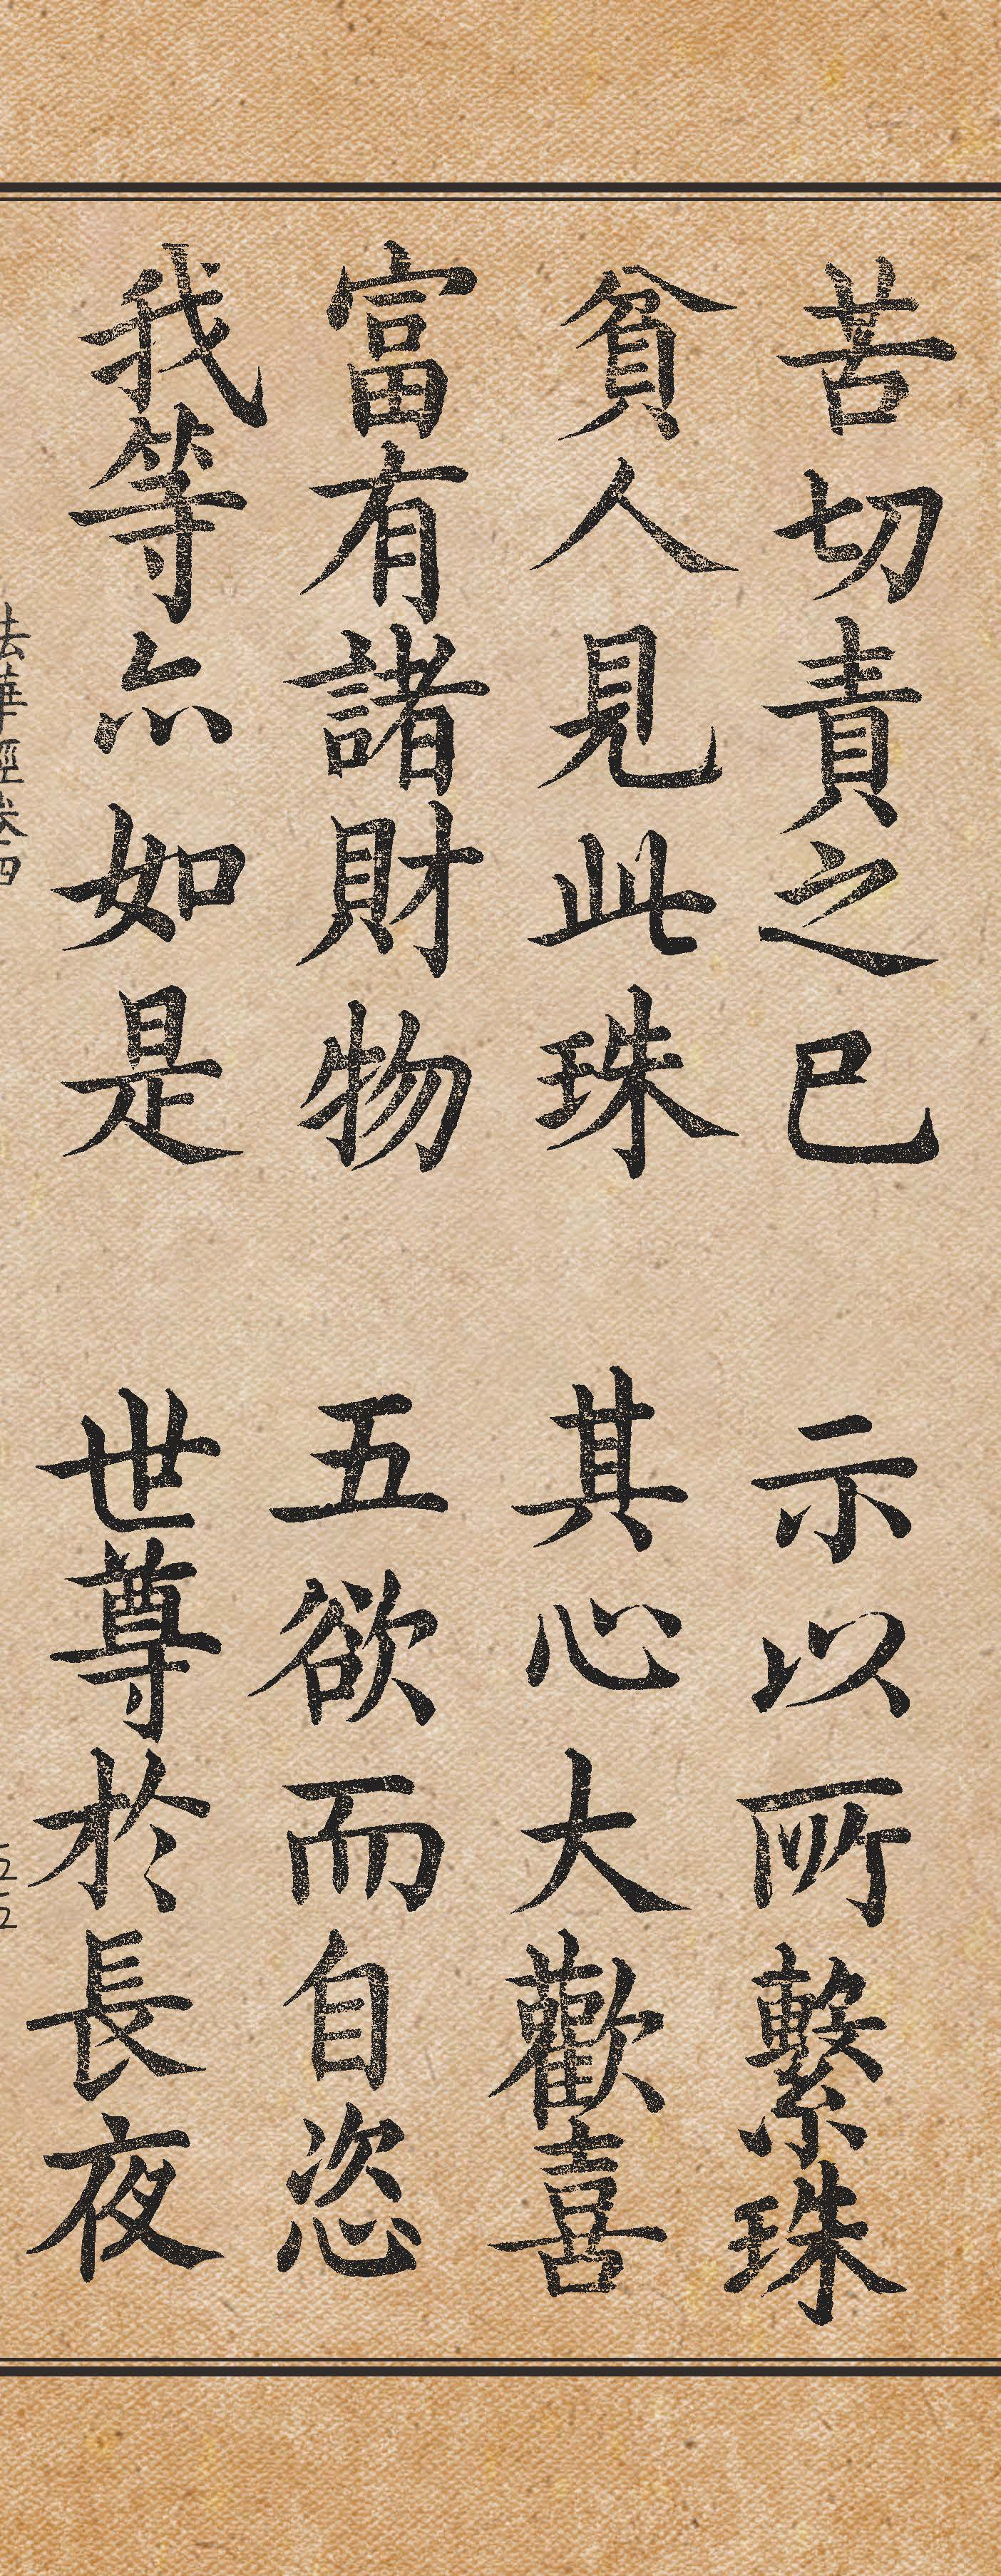 苦切責之已　示以所繫珠
貧人見此珠　其心大歡喜
富有諸財物　五欲而自恣
我等亦如是　世尊於長夜
法華經卷四　五五